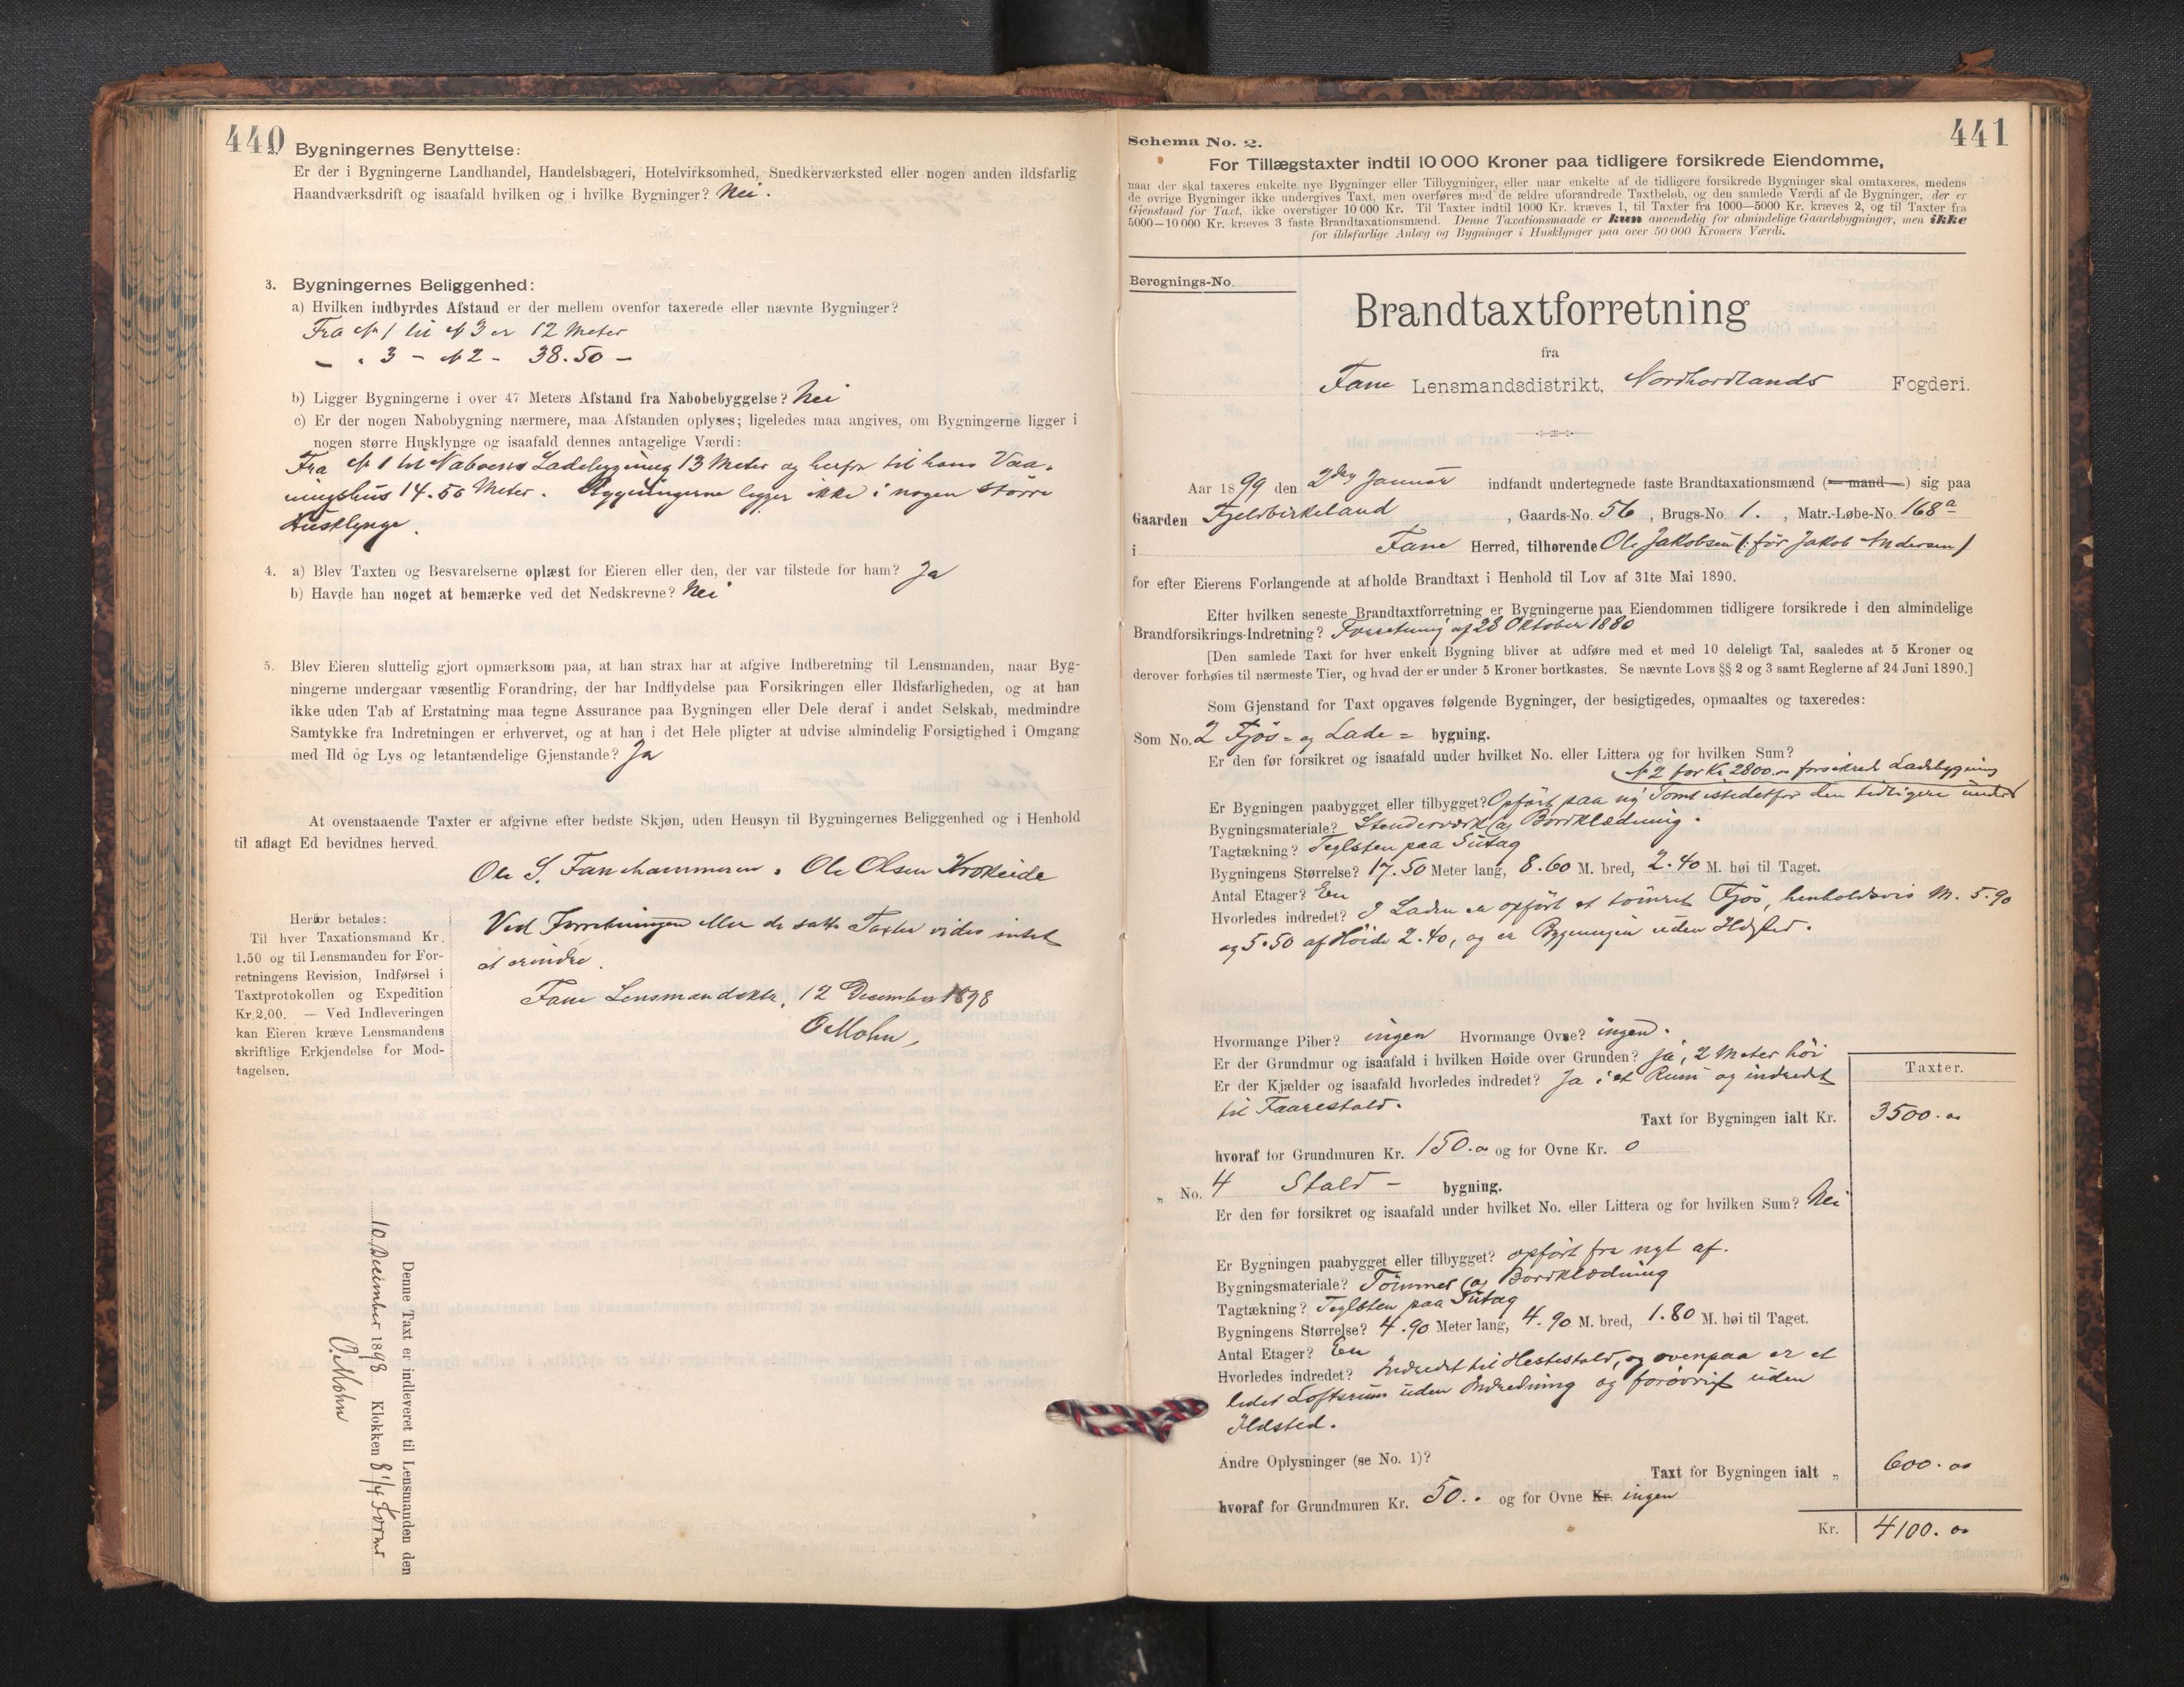 440
2. Bygningernes Benyttelse:
Er der i Bygningerne Landhandel, Handelsbageri, Hotelvirksomhed, Snedkerværksted eller nogen anden ildsfarlig
Haandværksdrift og isaafald hvilken og i hvilke Bygninger? Nei.
3. Bygningernes Beliggenhed:
a) Hvilken indbyrdes Afstand er der mellem ovenfor taxerede eller nævnte Bygninger?
Fra № 1 til № 3 er 12 Meter
– „ 3 – № 2 – 38.50 –
b) Ligger Bygningerne i over 47 Meters Afstand fra Nabobebyggelse? Nei
c) Er der nogen Nabobygning nærmere, maa Afstanden oplyses; ligeledes maa angives, om Bygningerne ligger i
nogen større Husklynge og isaafald dennes antagelige Værdi:
Fra № 1 til Naboens Ladebygning 13 Meter og herfra til hans Vaa-
ningshus 14.50 Meter. Bygningerne ligger ikke i nogen større
Husklynge.
4. a) Blev Taxten og Besvarelserne oplæst for Eieren eller den, der var tilstede for ham? Ja
b) Havde han noget at bemærke ved det Nedskrevne? Nei
5. Blev Eieren sluttelig gjort opmærksom paa, at han strax har at afgive Indberetning til Lensmanden, naar Byg-
ningerne undergaar væsentlig Forandring, der har Indflydelse paa Forsikringen eller Ildsfarligheden, og at han
ikke uden Tab af Erstatning maa tegne Assurance paa Bygningen eller Dele deraf i andet Selskab, medmindre
Samtykke fra Indretningen er erhvervet, og at han i det Hele pligter at udvise almindelig Forsigtighed i Omgang
med Ild og Lys og letantændelige Gjenstande? Ja
At ovenstaaende Taxter er afgivne efter bedste Skjøn, uden Hensyn til Bygningernes Beliggenhed og i Henhold
til aflagt Ed bevidnes herved.
Ole S. Fanehammeren. Ole Olsen Krokeide
Herfor betales:
Til hver Taxationsmand Kr.
1.50 og til Lensmanden for For-
retningens Revision, Indførsel i
Taxtprotokollen og Expedition
Kr. 2.00. — Ved Indleveringen
kan Eieren kræve Lensmandens
skriftlige Erkjendelse for Mod-
tagelsen.
Ved Forretningen eller de satte Taxter vides intet
at erindre.
Fane Lensmandsktr. 12 December 1898
O Mohn
Denne Taxt er indleveret til Lensmanden den
10 December 1898 Klokken 8 1/4 Form
O. Mohn
441
Schema No. 2.
For Tillægstaxter indtil 10 000 Kroner paa tidligere forsikrede Eiendomme,
naar der skal taxeres enkelte nye Bygninger eller Tilbygninger, eller naar enkelte af de tidligere forsikrede Bygninger skal omtaxeres, medens
de øvrige Bygninger ikke undergives Taxt, men overføres med de ældre uforandrede Taxtbeløb, og den samlede Værdi af de Bygninger, der er
Gjenstand for Taxt, ikke overstiger 10 000 Kr. Til Taxter indtil 1000 Kr. kræves 1, til Taxter fra 1000—5000 Kr. kræves 2, og til Taxter fra
5000—10 000 Kr. kræves 3 faste Brandtaxationsmænd. Denne Taxationsmaade er kun anvendelig for almindelige Gaardsbygninger, men ikke
for ildsfarlige Anlæg og Bygninger i Husklynger paa over 50 000 Kroners Værdi.
Beregnings-No.
Brandtaxtforretning
fra
Fane Lensmandsdistrikt, Nordhordlands Fogderi.
Aar 1899 den 2den Januar indfandt undertegnede faste Brandtaxationsmænd (mand) sig paa
Gaarden Fjeldbirkeland, Gaards-No. 56, Brugs-No. 1., Matr.-Løbe-No. 168a
i Fane Herred, tilhørende Ole Jakobsen (: før Jakob Andersen)
for efter Eierens Forlangende at afholde Brandtaxt i Henhold til Lov af 31te Mai 1890.
Efter hvilken seneste Brandtaxtforretning er Bygningerne paa Eiendommen tidligere forsikrede i den almindelige
Brandforsikrings-Indretning? Forretning af 28 Oktober 1880
[Den samlede Taxt for hver enkelt Bygning bliver at udføre med et med 10 deleligt Tal, saaledes at 5 Kroner og
derover forhøies til nærmeste Tier, og hvad der er under 5 Kroner bortkastes. Se nævnte Lovs §§ 2 og 3 samt Reglerne af 24 Juni 1890.]
Som Gjenstand for Taxt opgaves følgende Bygninger, der besigtigedes, opmaaltes og taxeredes:
Som No. 2 Fjøs- og Lade- bygning.
Er den før forsikret og isaafald under hvilket No. eller Littera og for hvilken Sum?
№ 2 for Kr. 2800.00 forsikret Ladebygning
Er Bygningen paabygget eller tilbygget? Opført paa ny Tomt istedetfor den tidligere under
Bygningsmateriale? Stenderværk og Bordklædning.
Tagtækning? Teglsten paa Sutag
Bygningens Størrelse? 17.50 Meter lang, 8.60 M. bred, 2.40 M. høi til Taget.
Antal Etager? En
Hvorledes indredet? I Laden er opført et tømret Fjøs, henholdsvis M. 5.90
og 5.50 af Høide 2.40, og er Bygningen uden Ildsted.
Hvormange Piber? ingen Hvormange Ovne? ingen.
Er der Grundmur og isaafald i hvilken Høide over Grunden? ja, 2 Meter høi
Er der Kjælder og isaafald hvorledes indredet? Ja i et Rum og indredet
til Faarestald.
Taxter.
Taxt for Bygningen ialt Kr. 3500.00
hvoraf for Grundmuren Kr. 150.00 og for Ovne Kr. 0
„ No. 4 Stald- bygning.
Er den før forsikret og isaafald under hvilket No. eller Littera og for hvilken Sum? Nei
Er Bygningen paabygget eller tilbygget? opført fra nyt af.
Bygningsmateriale? Tømmer og Bordklædning
Tagtækning? Teglsten paa Sutag
Bygningens Størrelse? 4.90 Meter lang, 4.90 M. bred, 1.80 M. høi til Taget.
Antal Etager? En
Hvorledes indredet? Indredet til Hestestald, og ovenpaa er et
lidet Loftsrum uden Indredning og forøvrigt uden
Ildsted.
Andre Oplysninger (se No. 1)?
Taxt for Bygningen ialt „ 600.00
hvoraf for Grundmuren Kr. 50.. og for Ovne Kr. ingen
Kr. 4100.00